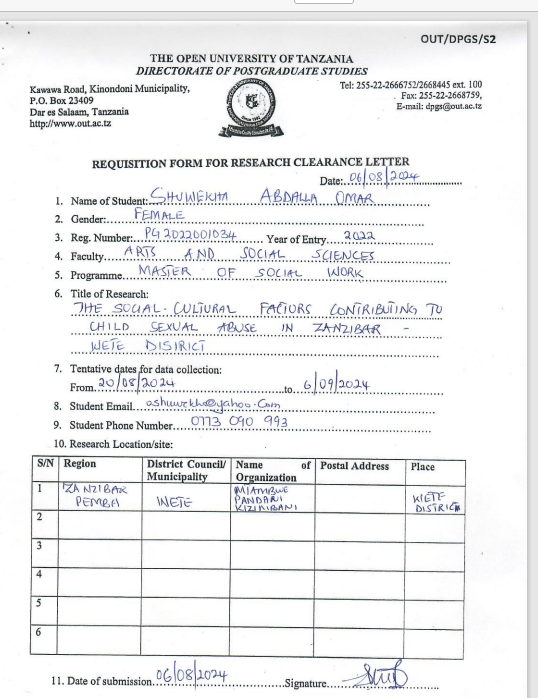 OUT/DPGS/S2
THE OPEN UNIVERSITY OF TANZANIA
DIRECTORATE OF POSTGRADUATE STUDIES
Kawawa Road, Kinondoni Municipality,
P.O. Box 23409
Dar es Salaam, Tanzania
http://www.out.ac.tz
Tel: 255-22-2666752/2668445 ext. 100
Fax: 255-22-2668759,
E-mail: dpgs@out.ac.tz
REQUISITION FORM FOR RESEARCH CLEARANCE LETTER
Date: 06/08/2024
1. Name of Student: SHUWEKHA ABDALLA OMAR
2. Gender: FEMALE
3. Reg. Number: PG 2022001034 Year of Entry 2022
4. Faculty ARTS AND SOCIAL SCIENCES
5. Programme MASTER OF SOCIAL WORK
6. Title of Research:
THE SOCIAL-CULTURAL FACTORS CONTRIBUTING TO
CHILD SEXUAL ABUSE IN ZANZIBAR -
WETE DISTRICT
7. Tentative dates for data collection:
From 20/08/2024 to 6/09/2024
8. Student Email ashuwekha@yahoo.com
9. Student Phone Number 0773 090 993
10. Research Location/site:
S/N Region District Council/ Municipality Name of Organization Postal Address Place
1 ZANZIBAR PEMBA WETE MJAMBWE PANDANI WETE DISTRICT
2
3
4
5
6
11. Date of submission 06/08/2024 Signature